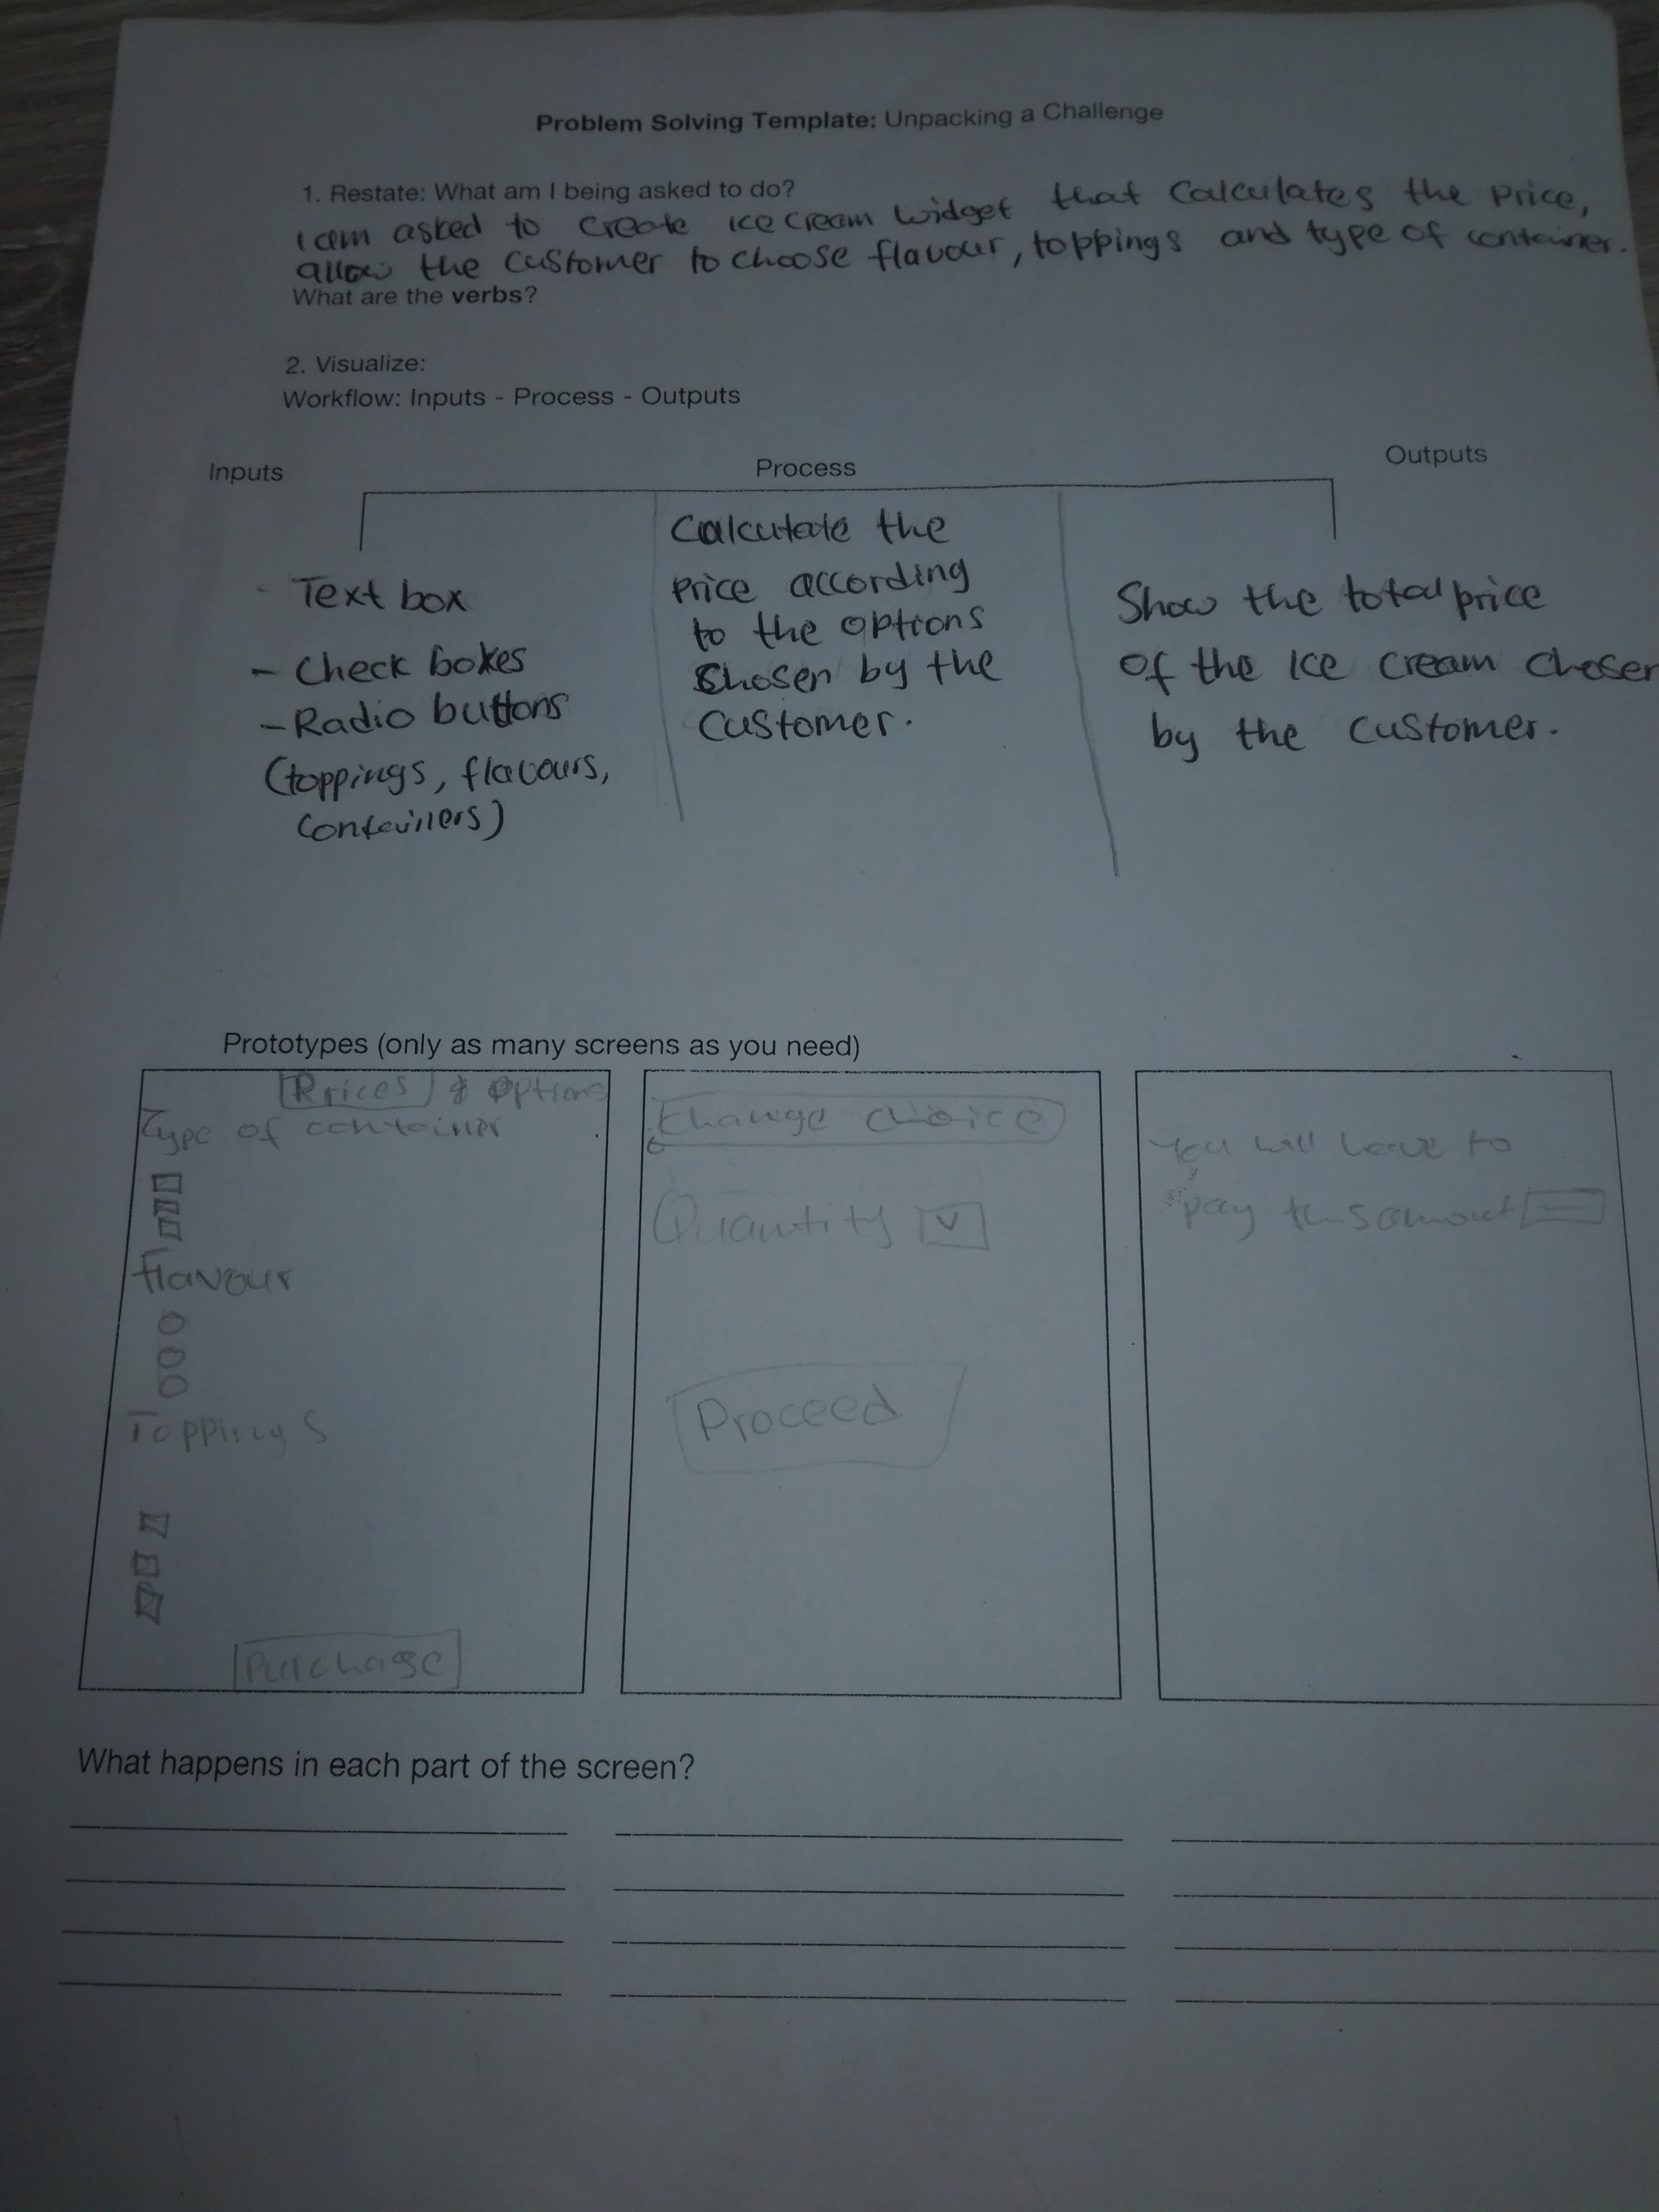 Problem Solving Template: Unpacking a Challenge
1. Restate: What am I being asked to do?
that calculates the price,
I am asked to create ice cream widget
allow the customer to choose flavour, toppings and type of container.
What are the verbs?
2. Visualize:
Workflow: Inputs - Process - Outputs
Inputs
Process
Outputs
Text box
- Check boxes
- Radio buttons
(toppings, flavours,
containers)
Calculate the
price according
to the options
chosen by the
customer.
Show the total price
of the ice cream chosen
by the customer.
Prototypes (only as many screens as you need)
Prices & options
Type of container
flavour
Toppings
Purchase
Change choice
Quantity
Proceed
You will have to
pay this amount
What happens in each part of the screen?